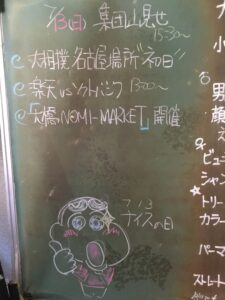 7/13(日) 集団山見せ
15:30〜
大相撲名古屋場所"初日"
楽天 vs ソフトバンク 13:00〜
「大橋NOMI-MARKET」開催
7/13
ナイスの日
小
男
顔
ビュー
シャン
☆トリー
カラー
パーマ
ストレート